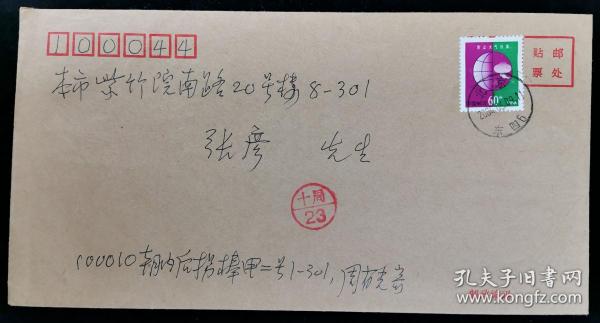 100044
贴邮
票处
60分
本市紫竹院南路20号楼8-301
张彦 先生
十局
23
100010朝内后拐棒甲二号1-301,周有光寄
孔夫子旧书网
www.kongfz.com